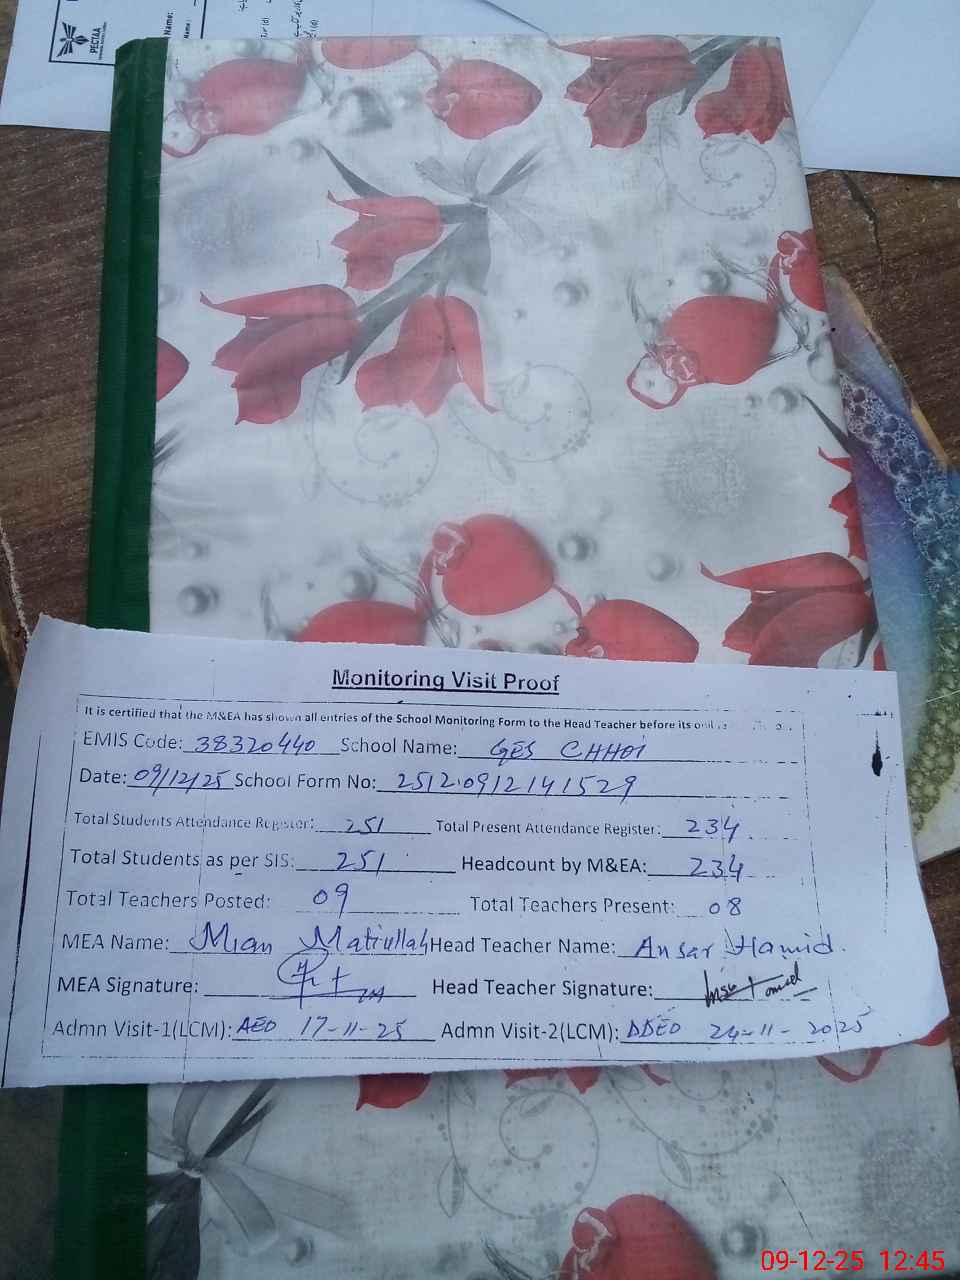 PECTAA
Name:
Name:
Monitoring Visit Proof
It is certified that the M&EA has shown all entries of the School Monitoring Form to the Head Teacher before its
EMIS Code: 38320440 School Name: GES CHHOI
Date: 09/12/25 School Form No: 2512091214 1529
Total Students Attendance Register: 251 Total Present Attendance Register: 234
Total Students as per SIS: 251 Headcount by M&EA: 234
Total Teachers Posted: 09 Total Teachers Present: 08
MEA Name: Mian Matiullah Head Teacher Name: Ansar Hamid.
MEA Signature: Head Teacher Signature:
Admn Visit-1(LCM): AEO 17-11-25 Admn Visit-2(LCM): DDEO 24-11-2025
09-12-25 12:45